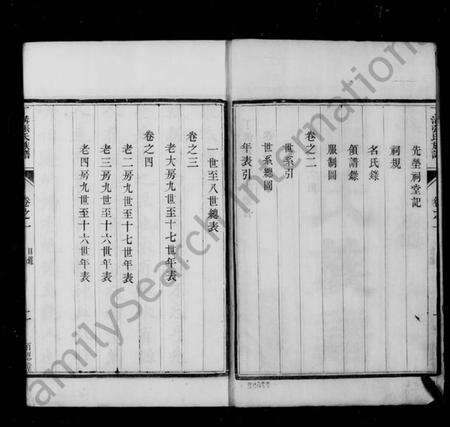 先塋祠堂記
祠規
名氏錄
領譜錄
服制圖
卷之二
世系引
世系總圖
年表引
一世至八世總表
卷之三
老大房九世至十七世年表
卷之四
老二房九世至十七世年表
老三房九世至十六世年表
老四房九世至十六世年表
卷之一
目錄
FamilySearch International